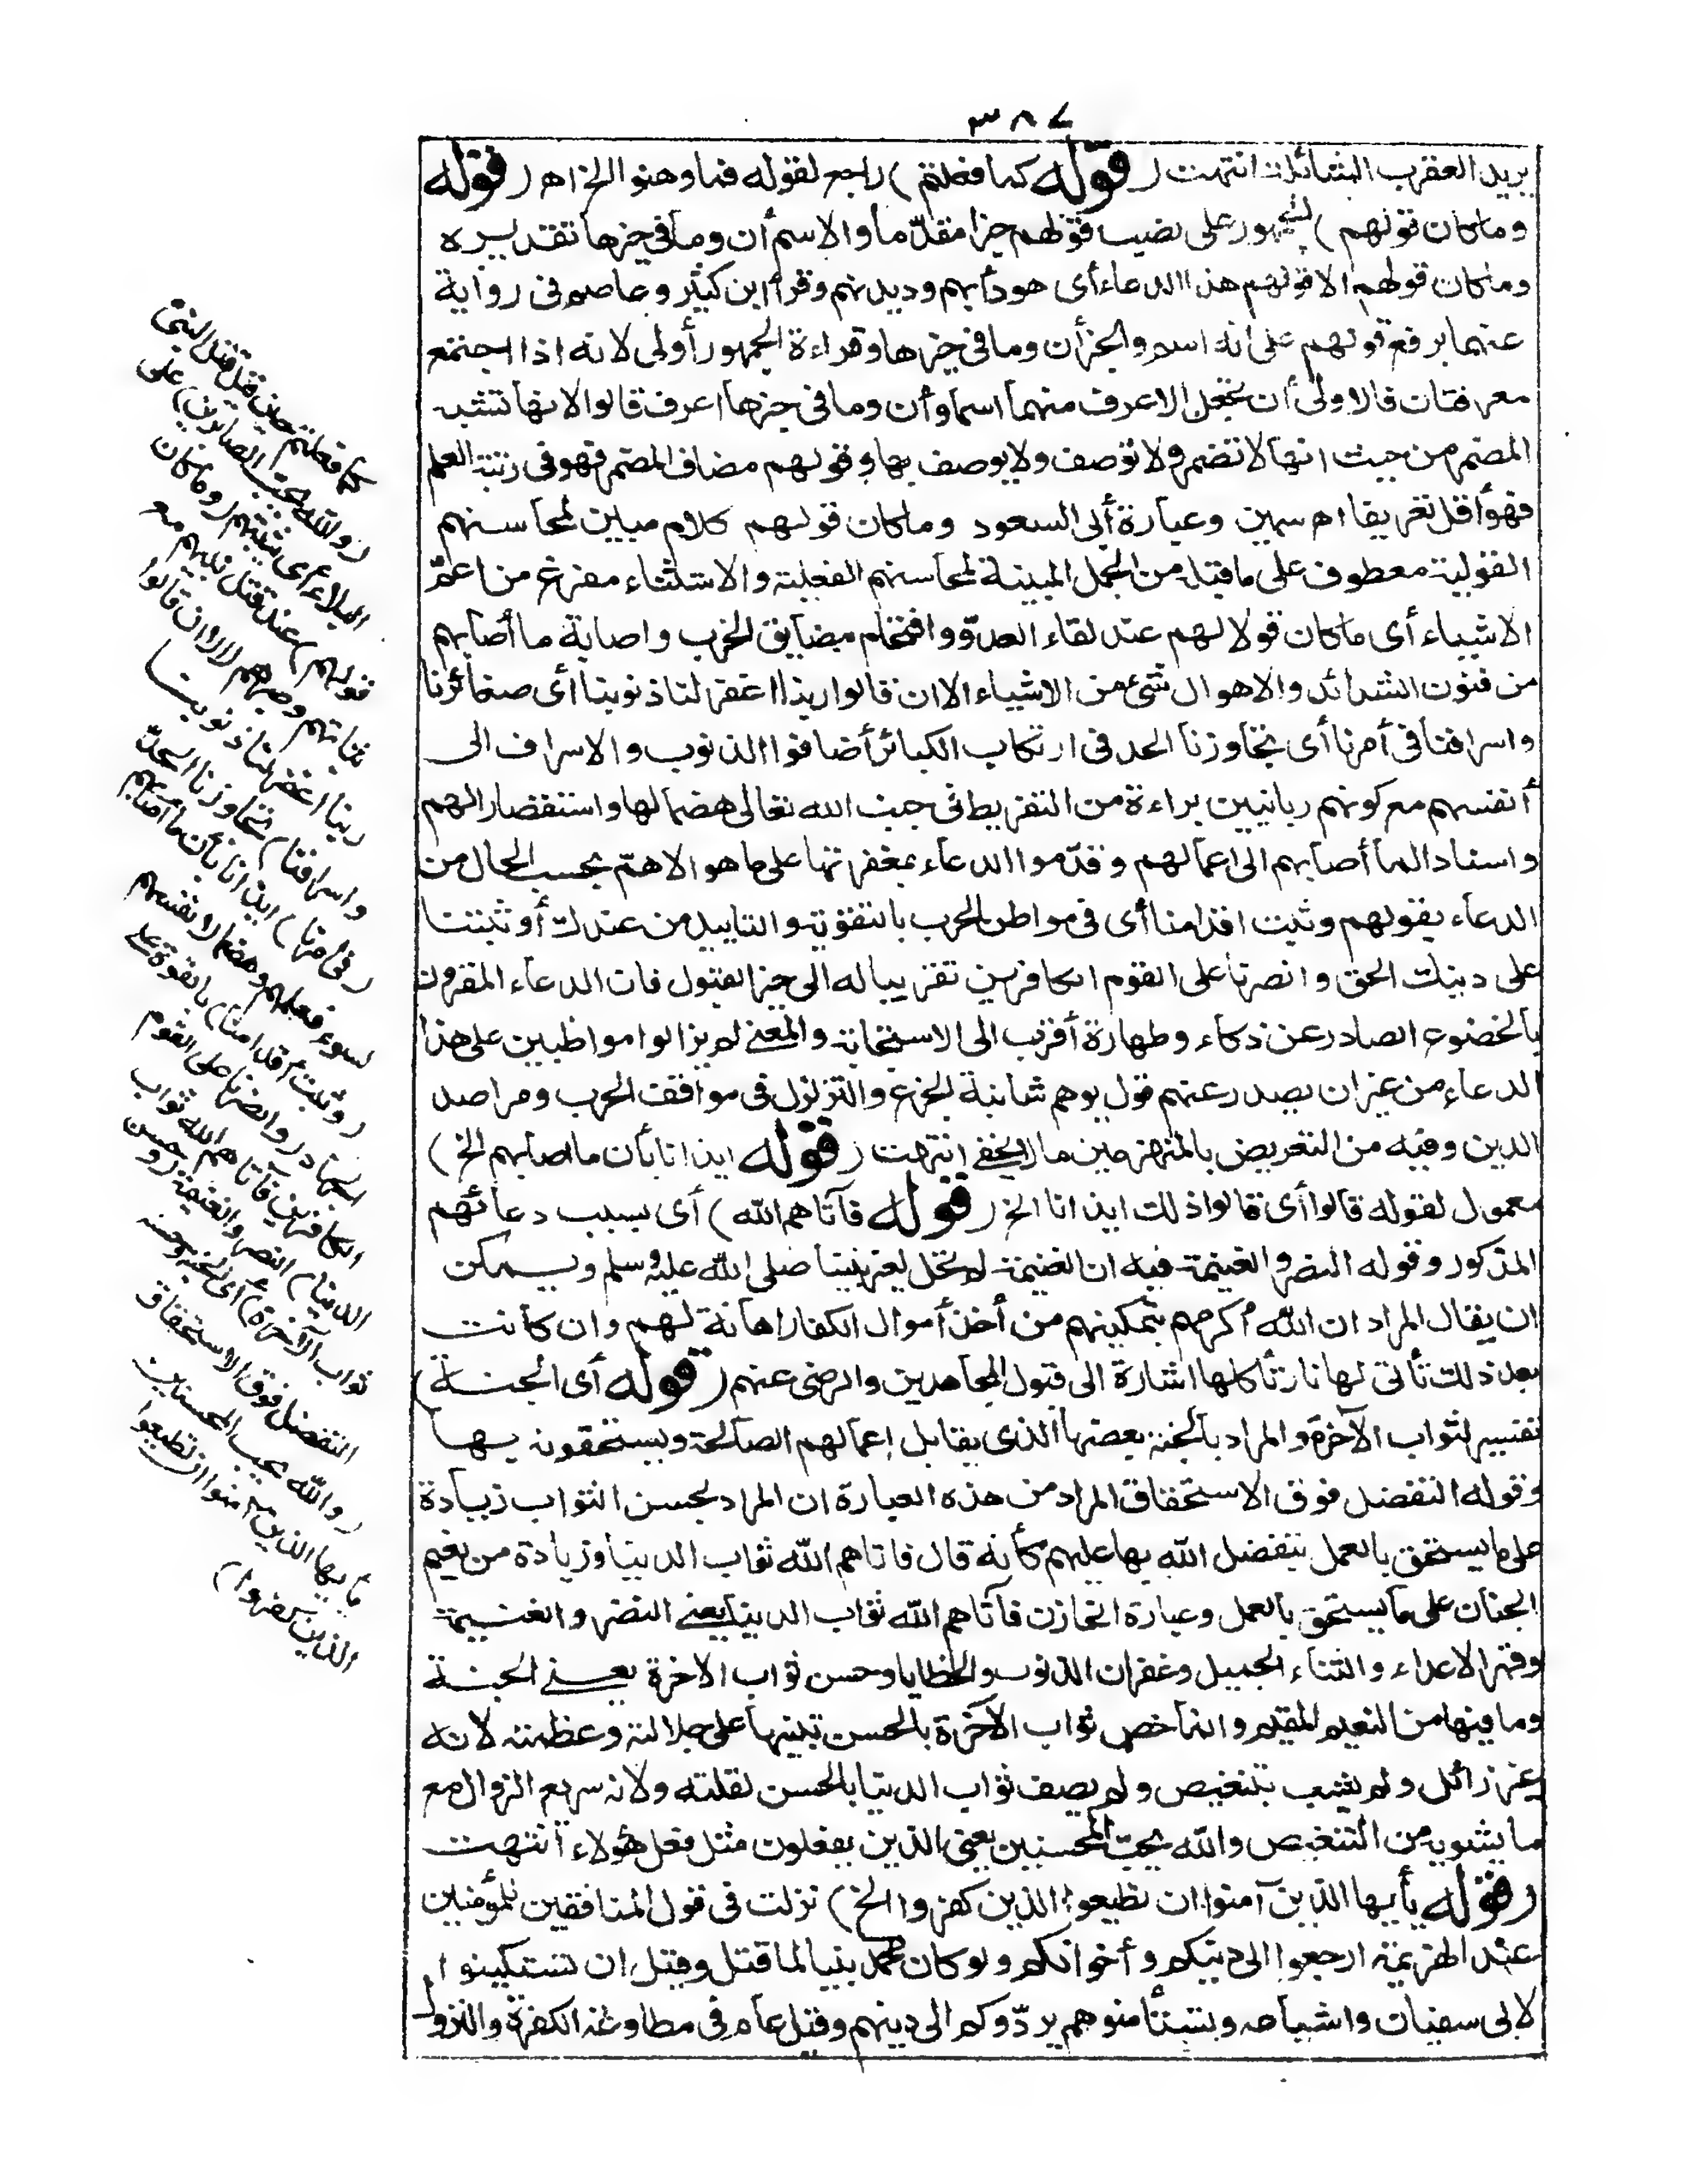 ٣٨٧
يريد العقرب الشائلة انتهت (قوله كما فعلتم) راجع لقوله فما وهنوا الخ اه (قوله
وما كان قولهم) الجمهور على نصب قولهم خبرا مقدّما والاسم أن وما في حيزها تقديره
وما كان قولهم الا قولهم هذا الدعاء أي هو دأبهم وديدنهم وقرأ ابن كثير وعاصم في رواية
عنهما برفع قولهم على انه اسم والخبر أن وما في حيزها وقراءة الجمهور أولى لانه اذا اجتمع
معرفتان فالاولى أن تجعل الاعرف منهما اسما وأن وما في حيزها اعرف قالوا لانها تشبه
المضمر من حيث انها لا تضمر ولا توصف ولا يوصف بها وقولهم مضاف للمضمر فهو في رتبة العلم
فهو أقل تعريفا اه سمين وعبارة أبي السعود وما كان قولهم كلام مبين لمحاسنهم
القولية معطوف على ما قبله من الجمل المبينة لمحاسنهم الفعلية والاستثناء مفرغ من اعمّ
الاشياء أي ما كان قولا لهم عند لقاء العدوّ واقتحام مضايق الحرب واصابة ما أصابهم
من فنون الشدائد والاهوال شئ من الاشياء الا ان قالوا ربنا اغفر لنا ذنوبنا أي صغائرنا
واسرافنا في أمرنا أي تجاوزنا الحد في ارتكاب الكبائر أضافوا الذنوب والاسراف الى
أنفسهم مع كونهم ربانيين براءة من التفريط في جنب الله تعالى هضما لها واستقصارا لهم
واسنادا لما أصابهم الى اعمالهم وقدّموا الدعاء بمغفرتها على ما هو الاهمّ بحسب الحال من
الدعاء بقولهم وثبت اقدامنا أي في مواطن الحرب بالتقوية والتاييد من عندك أو ثبتنا
على دينك الحق وانصرنا على القوم الكافرين تقريبا له الى حيز القبول فان الدعاء المقرون
بالخضوع الصادر عن ذكاء وطهارة أقرب الى الاستجابة والمعنى لم يزالوا مواظبين على هذا
الدعاء من غير ان يصدر عنهم قول يوهم شائبة الجزع والتزلزل في مواقف الحرب ومراصد
الدين وفيه من التعريض بالمنهزمين ما لا يخفى انتهت (قوله ايذانا بأن ما اصابهم الخ)
معمول لقوله قالوا أي قالوا ذلك ايذانا الخ (قوله فآتاهم الله) أي بسبب دعائهم
المذكور وقوله النصر والغنيمة فيه ان الغنيمة لم تحل لغير نبينا صلى الله عليه وسلم ويمكن
ان يقال المراد ان الله أكرمهم بتمكينهم من أخذ أموال الكفار اهانة لهم وان كانت
بعد ذلك تأتى لها نار تأكلها اشارة الى قبول المجاهدين والرضى عنهم (قوله أي الجنة)
تفسير لثواب الآخرة والمراد بالجنة بعضها الذي يقابل إعمالهم الصالحة ويستحقونه بها
وقوله التفضل فوق الاستحقاق المراد من هذه العبارة ان المراد بحسن الثواب زيادة
على ما يستحق بالعمل يتفضل الله بها عليهم كأنه قال فاتاهم الله ثواب الدنيا وزيادة من نعيم
الجنان على ما يستحق بالعمل وعبارة الخازن فآتاهم الله ثواب الدنيا يعنى النصر والغنيمة
وقهر الاعداء والثناء الجميل وغفران الذنوب والخطايا وحسن ثواب الاخرة يعنى الجنة
وما فيها من النعيم المقيم وانما خص ثواب الآخرة بالحسن تنبيها على جلالته وعظمته لانه
غير زائل ولم يشب بتنغيص ولم يصف ثواب الدنيا بالحسن لقلته ولانه سريع الزوال مع
ما يشوبه من التنغيص والله يحبّ المحسنين يعني الذين يفعلون مثل فعل هؤلاء انتهت
(قوله يأيها الذين آمنوا ان تطيعوا الذين كفروا الخ) نزلت في قول المنافقين للمؤمنين
عند الهزيمة ارجعوا الى دينكم وأخوانكم ولو كان محمد نبيا لما قتل وقيل ان تستكينوا
لابى سفيان واشياعه وتستأمنوهم يردّوكم الى دينهم وقيل عام في مطاوعة الكفرة والنزول
كما فعلتم حين قيل قتل النبيّ
(والله يحبّ الصابرين) على
البلاء أي يثيبهم (وما كان
قولهم) عند قتل نبيهم مع
ثباتهم وصبرهم (الا ان قالوا
ربنا اغفر لنا ذنوبنا
واسرافنا) تجاوزنا الحدّ
(في أمرنا) ايذانا بأن ما أصابهم
لسوء فعلهم وهضما لانفسهم
(وثبت أقدامنا) بالقوة على
الجهاد (وانصرنا على القوم
الكافرين فآتاهم الله ثواب
الدنيا) النصر والغنيمة (وحسن
ثواب الآخرة) أي الجنة وحسنه
التفضل فوق الاستحقاق
(والله يحب المحسنين
يأيها الذين آمنوا ان تطيعوا
الذين كفروا)